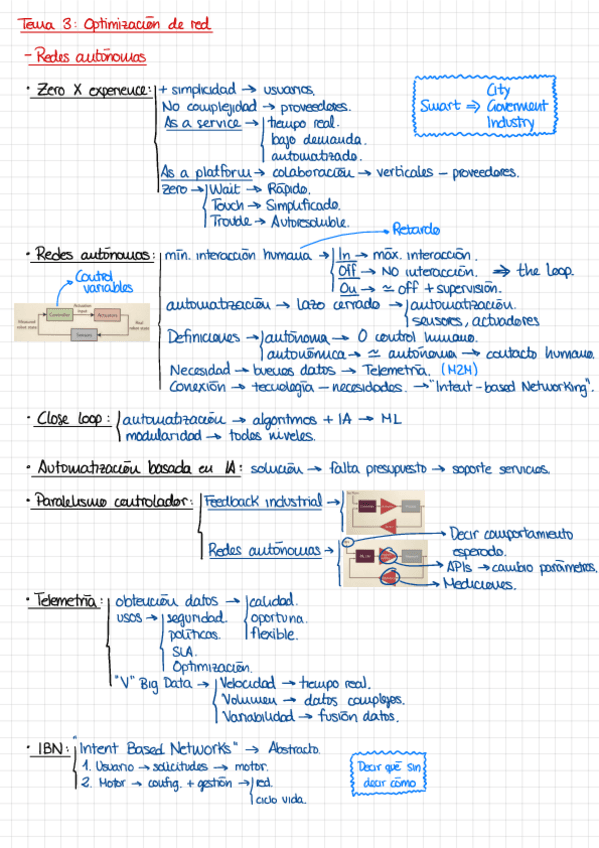 Tema 3: Optimización de red
- Redes autónomas
· Zero X experience: + simplicidad → usuarios.
No complejidad → proveedores.
As a service → tiempo real.
bajo demanda.
automatizado.
As a platform → colaboración → verticales – proveedores.
Zero → Wait → Rápido.
Touch → Simplificado.
Trouble → Autoresoluble.
City
Smart ⇒ Goverment
Industry
· Redes autónomas: mín. interacción humana → In → máx. interacción.
Retardo
Off → NO interacción. ⇒ the loop.
On → ≃ off + supervisión.
Control
variables
automatización → lazo cerrado → automatización.
sensores, actuadores
Definiciones → autónoma → 0 control humano.
autonómica → ≃ autónoma → contacto humano.
Necesidad → buenos datos → Telemetría. (M2M)
Conexión → tecnología – necesidades. → "Intent-based Networking".
Controller
Actuators
Sensors
· Close loop: automatización → algoritmos + IA → ML
modularidad → todos niveles.
· Automatización basada en IA: solución → falta presupuesto → soporte servicios.
· Paralelismo controlador: Feedback industrial →
Redes autónomas →
Decir comportamiento
esperado.
APIs → cambio parámetros.
Mediciones.
· Telemetría: obtención datos → calidad.
oportuna.
flexible.
usos → seguridad.
políticas.
SLA.
Optimización.
"V" Big Data → Velocidad → tiempo real.
Volumen → datos complejos.
Variabilidad → fusión datos.
· IBN: "Intent Based Networks" → Abstracto.
1. Usuario → solicitudes → motor.
2. Motor → config. + gestión → red.
ciclo vida.
Decir qué sin
decir cómo